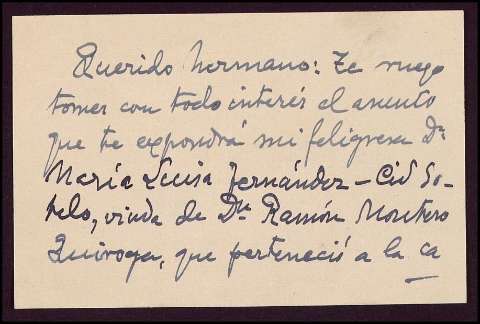 Querido hermano: Te ruego
tomes con todo interés el asunto
que te expondrá mi feligresa Dª
María Luisa Fernández-Cid So-
telo, viuda de Dn Ramón Montero
Quiroga, que perteneció a la ca